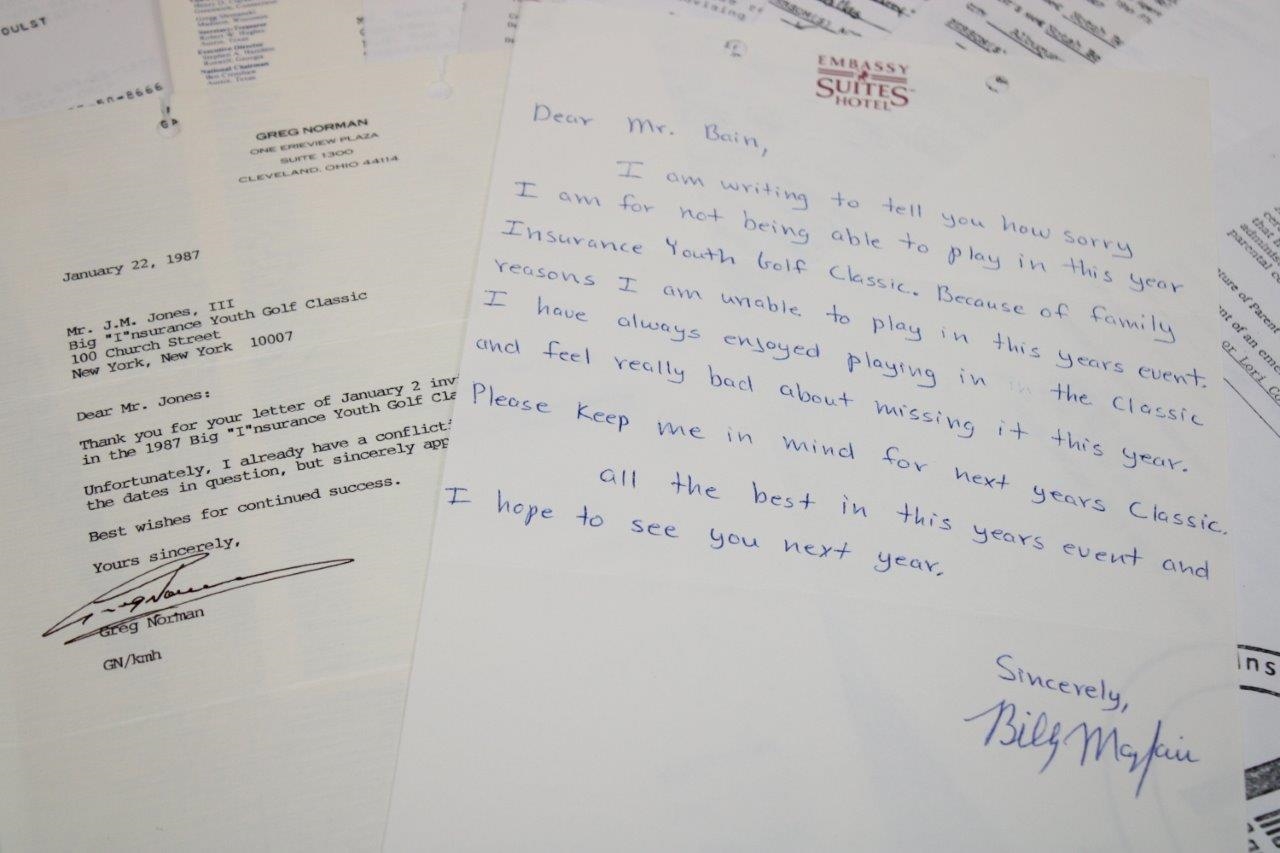 OULST
50-8666
Secretary-Treasurer
Robert W. Hughes
Austin, Texas
Executive Director
Stephen A. Hamilton
Roswell, Georgia
National Chairman
Ben Crenshaw
Austin, Texas
GREG NORMAN
ONE ERIEVIEW PLAZA
SUITE 1300
CLEVELAND, OHIO 44114
January 22, 1987
Mr. J.M. Jones, III
Big "I"nsurance Youth Golf Classic
100 Church Street
New York, New York 10007
Dear Mr. Jones:
Thank you for your letter of January 2 inv
in the 1987 Big "I"nsurance Youth Golf Cla
Unfortunately, I already have a conflicti
the dates in question, but sincerely app
Best wishes for continued success.
Yours sincerely,
Greg Norman
Greg Norman
GN/kmh
EMBASSY
SUITES
HOTEL
Dear Mr. Bain,
I am writing to tell you how sorry
I am for not being able to play in this year
Insurance Youth Golf Classic. Because of family
reasons I am unable to play in this years event.
I have always enjoyed playing in the Classic
and feel really bad about missing it this year.
Please Keep me in mind for next years Classic.
all the best in this years event and
I hope to see you next year.
Sincerely,
Billy Mayfair
ture of Parent
nt of an eme
or Lori Co
ins